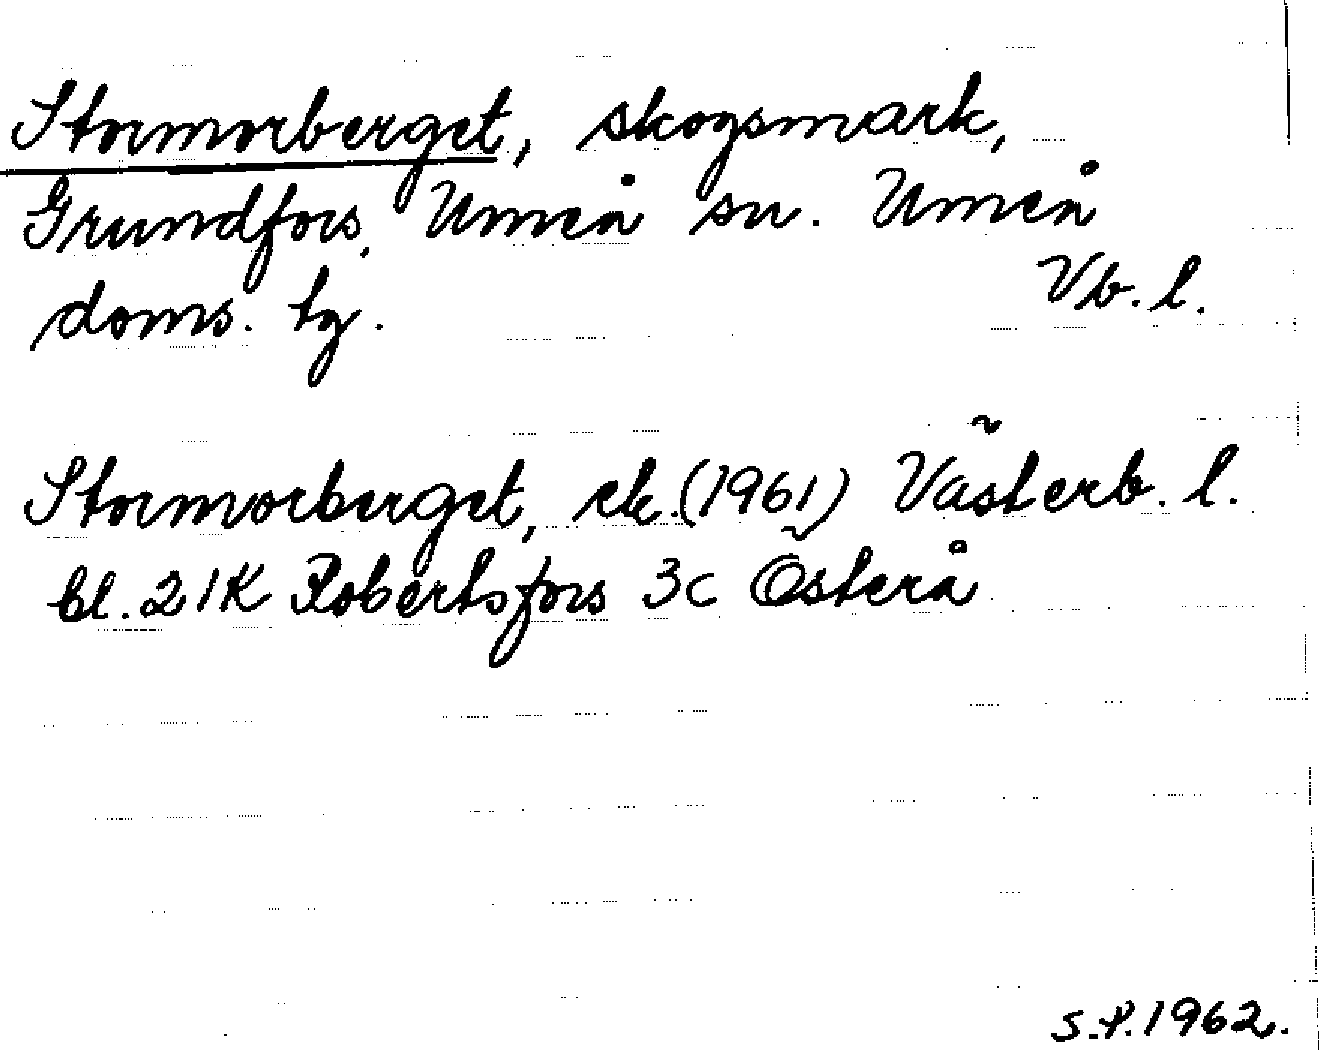 Stormorberget, skogsmark,
Grundfors, Umeå sn. Umeå
doms. tg. Vb. l.
Stormorberget, ek. (1961) Västerb. l.
bl. 21K Robertsfors 3c Österå
S.P. 1962.